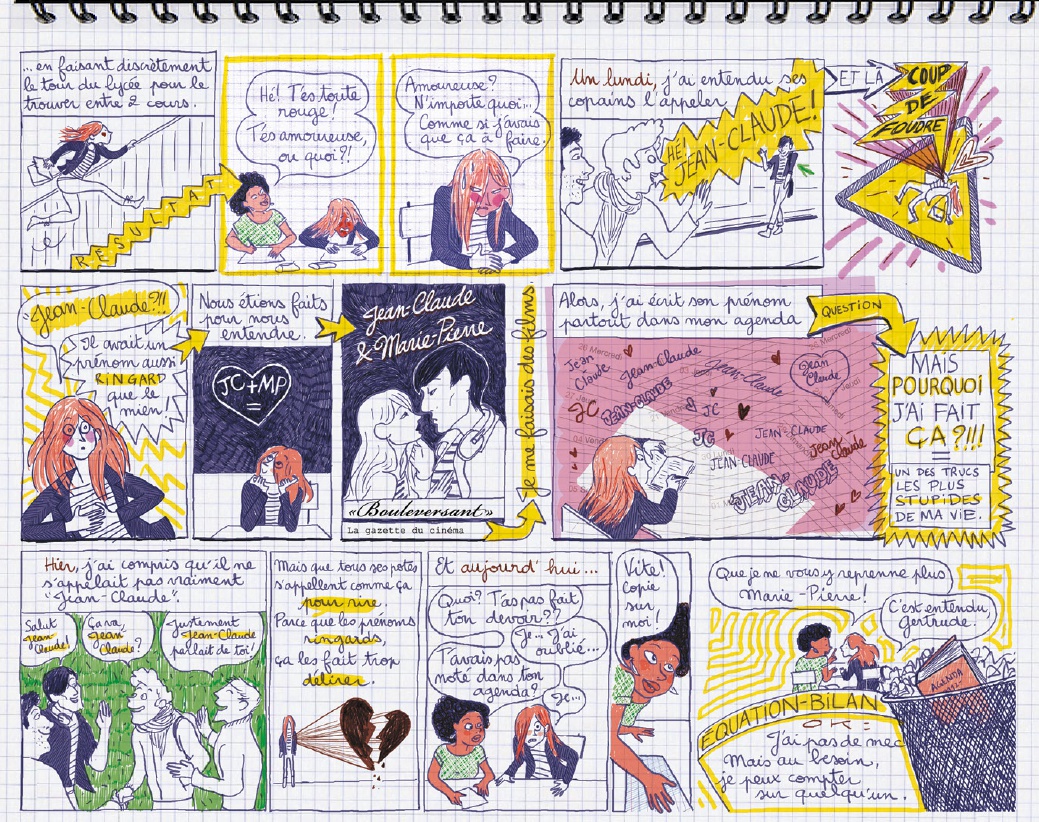 ...en faisant discrètement
le tour du lycée pour le
trouver entre 2 cours.
RÉSULTAT
Hé! T'es toute
rouge!
T'es amoureuse,
ou quoi?!
Amoureuse?
N'importe quoi...
Comme si j'avais
que ça à faire.
Un lundi, j'ai entendu ses
copains l'appeler
HÉ!
JEAN-CLAUDE!
ET LÀ
COUP
DE
FOUDRE
Jean-Claude?!!
Il avait un
prénom aussi
RINGARD
que le
mien!
Nous étions faits
pour nous
entendre.
JC+MP
=
Jean-Claude
& Marie-Pierre
«Bouleversant»
La gazette du cinéma
je me faisais des films
Alors, j'ai écrit son prénom
partout dans mon agenda
Mercredi
Jean
Claude
Jean-Claude
Jean-Claude
Jean
Claude
JC
JEAN-CLAUDE
JC
JC
JEAN-CLAUDE
Jean-
Claude
JEAN CLAUDE
JEAN-
CLAUDE
QUESTION
MAIS
POURQUOI
J'AI FAIT
ÇA?!!!
=
UN DES TRUCS
LES PLUS
STUPIDES
DE MA VIE.
Hier, j'ai compris qu'il ne
s'appelait pas vraiment
"Jean-Claude".
Salut
Jean-
Claude!
Ça va,
Jean
Claude?
Justement
Jean-Claude
parlait de toi!
Mais que tous ses potes
s'appellent comme ça
pour rire.
Parce que les prénoms
ringards,
ça les fait trop
délirer.
Et aujourd'hui...
Quoi? T'as pas fait
ton devoir??
Je... J'ai
oublié...
T'avais pas
noté dans ton
agenda?
Je...
Vite!
Copie
sur
moi!
Que je ne vous y reprenne plus
Marie-Pierre!
C'est entendu,
Gertrude.
AGENDA
ÉQUATION-BILAN
J'ai pas de mec
Mais au besoin,
je peux compter
sur quelqu'un.